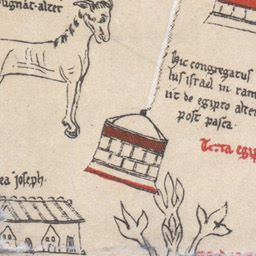 pugnat alter
hic congregatus
lus israel in ram
iit de egipto alter
post pasca
Terra egi
ea ioseph.